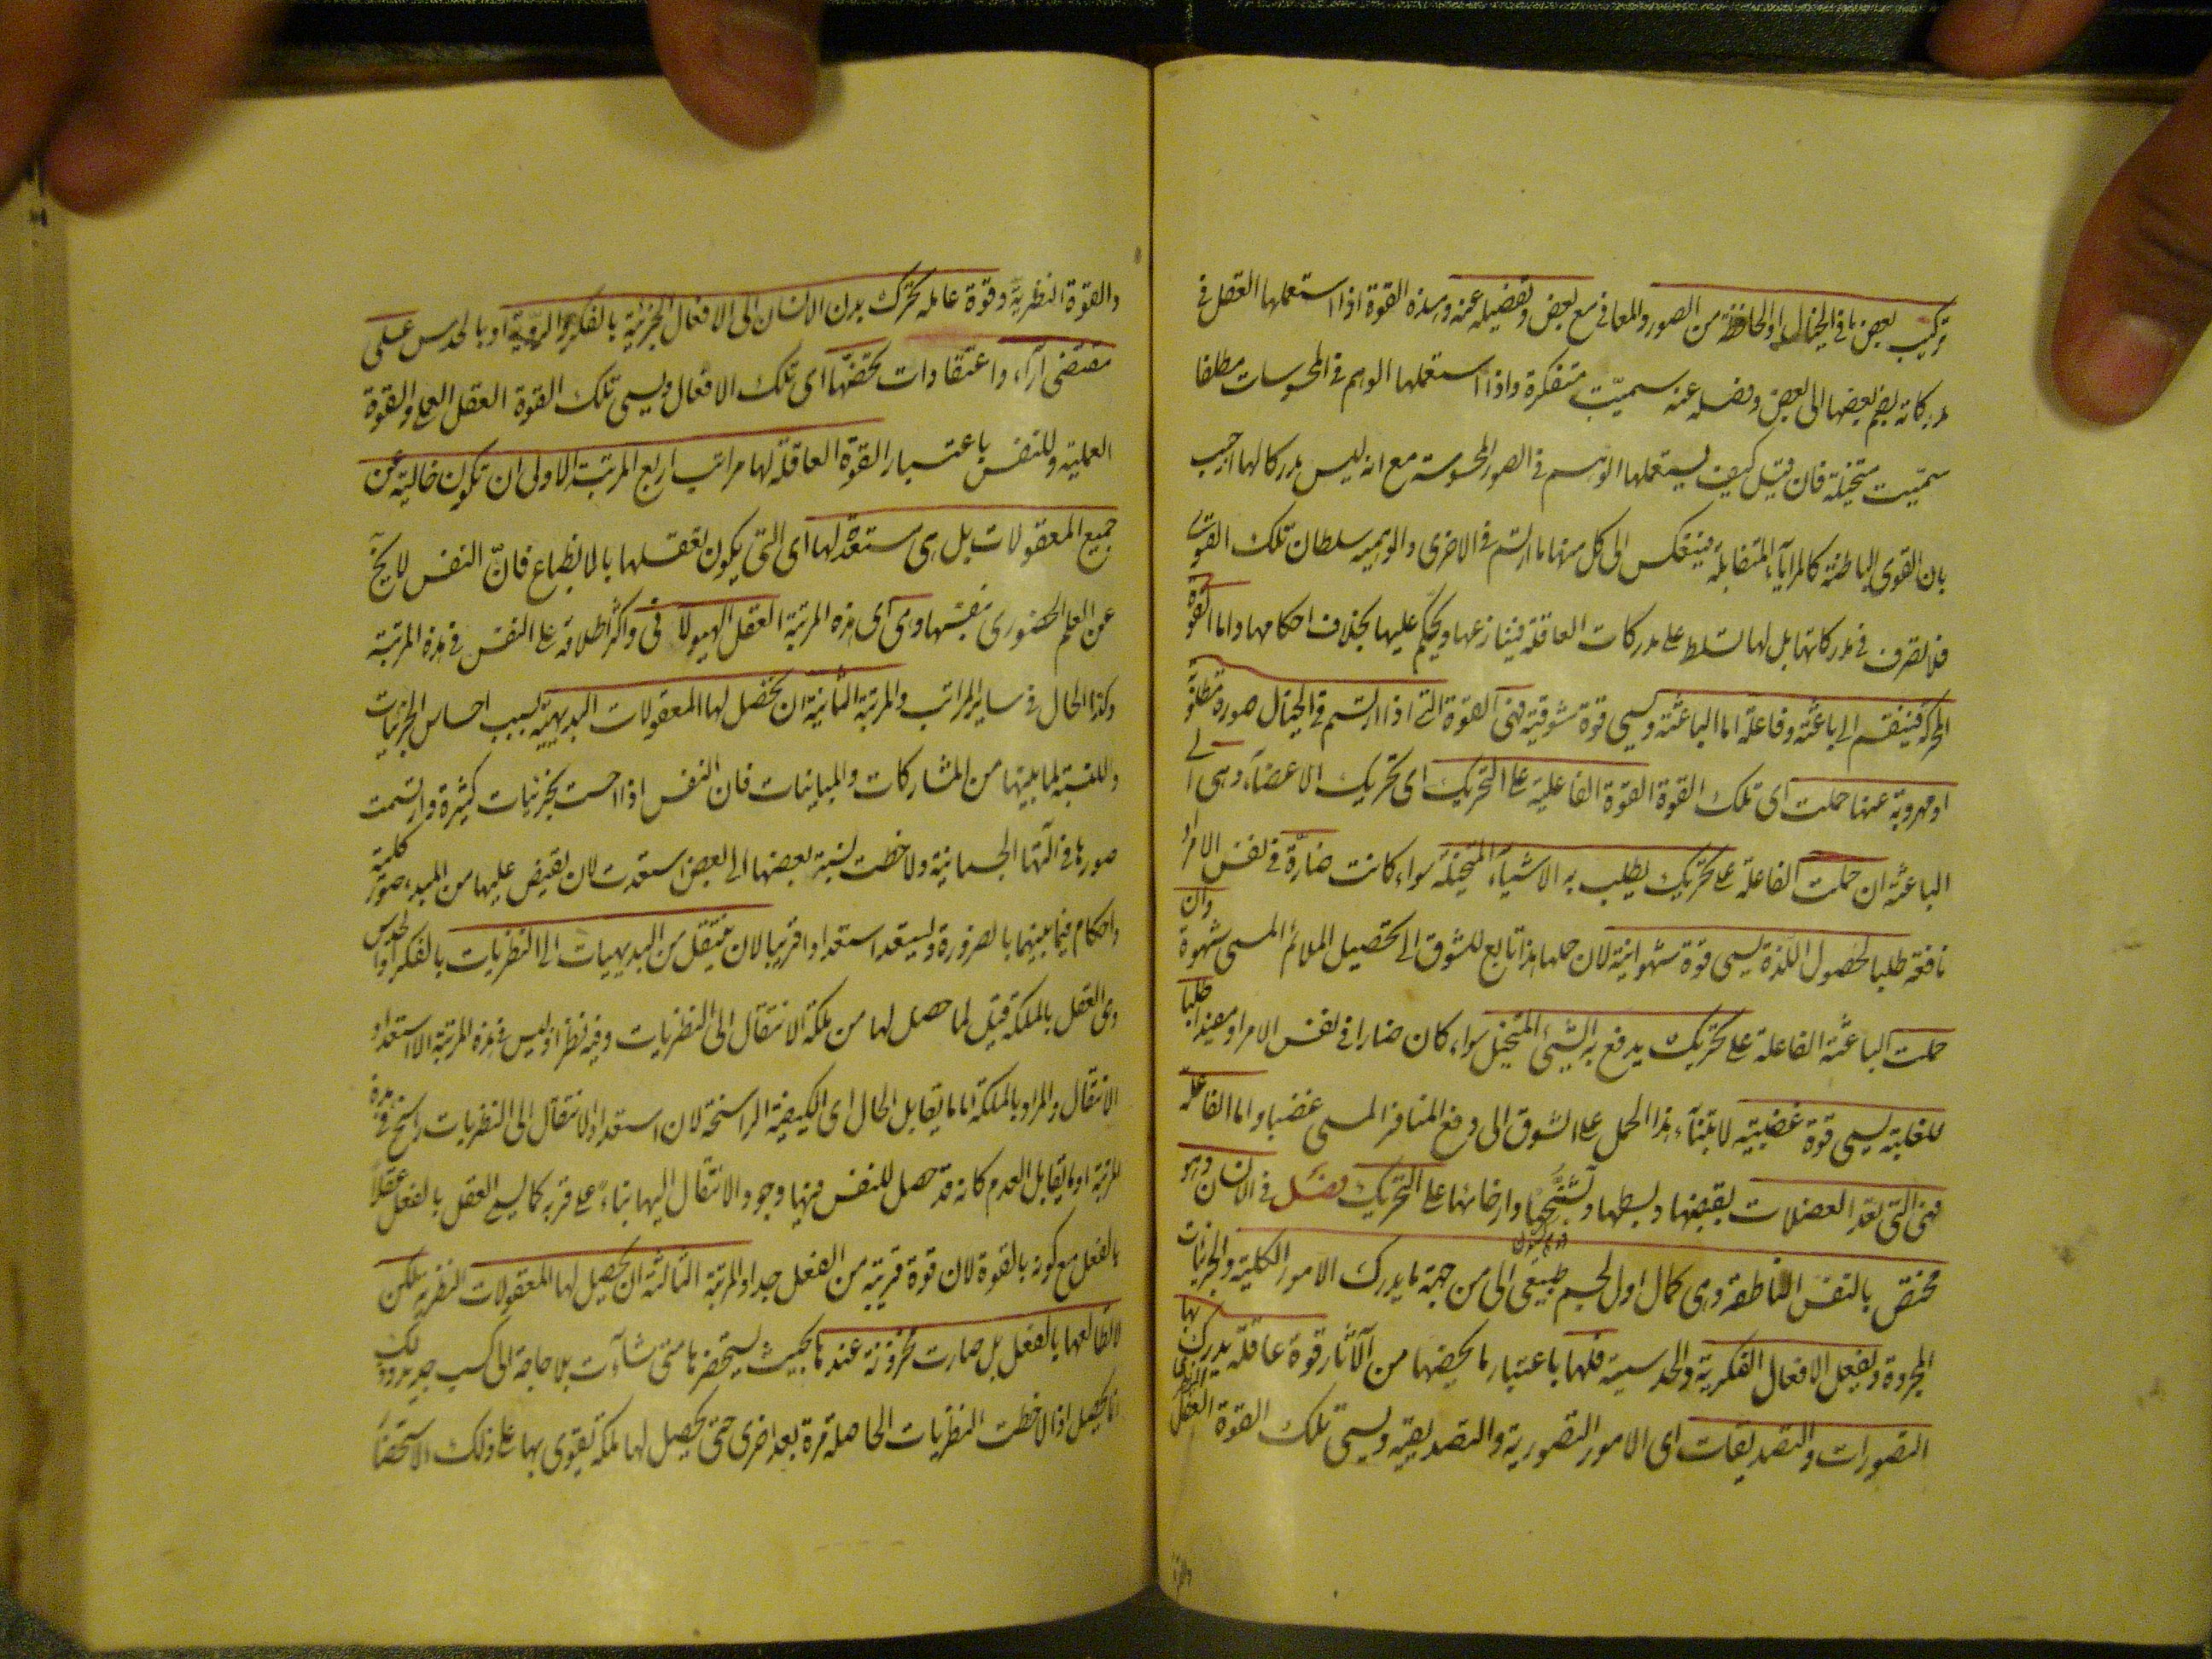 تركيب بعض ما في الخيال او الحافظة من الصور والمعاني مع بعض وتفصيله عنه وهذه القوة اذا استعملها العقل في
مدركاته بضم بعضها الى بعض وفصله عنه سميّت متفكرة واذا استعملها الوهم في المحسوسات مطلقا
سمّيت متخيلة فان قيل كيف يستعملها الوهم في الصور المحسوسة مع انه ليس مدركا لها اجيب
بان القوى الباطنة كالمرايا المتقابلة فينعكس الى كل منها ما ارتسم في الاخرى والوهمية سلطان تلك القوى
فلها تصرف في مدركاتها بل لها تسلط على مدركات العاقلة فينازعها ويحكم عليها بخلاف احكامها واما القوة
المحركة فينقسم الى باعثة وفاعلة اما الباعثة ويسمى قوة شوقية فهى القوة التى اذا ارتسم في الخيال صورة مطلوبة
او مهروبة عنها حملت اى تلك القوة القوة الفاعلية على التحريك اى تحريك الاعضآء وهى اى
الباعثة ان حملت الفاعلة على تحريك يطلب به الاشيآء المتخيلة سواء كانت ضارّة في نفس الامر او
نافعة طلبا لحصول اللذة يسمى قوة شهوانية لان حملها هذا تابع للشوق الى تحصيل الملائم المسمى شهوة وان
حملت الباعثة الفاعلة على تحريك يدفع به الشيئ المتخيل سواء كان ضارا في نفس الامر او مفيدا طلبا
للغلبة يسمى قوة غضبية لابتنآء هذا الحمل على الشوق الى دفع المنافر المسمى غضبا واما الفاعلة
فهى التى تعدّ العضلات بقبضها وبسطها وتشنّجها وارخائها على التحريك فصل في الانسان وهو
مختص بالنفس الناطقة وهى كمال اول لجسم طبيعى الى من جهة ما يدرك الامور الكلية والجزئيات
المجردة ويفعل الافعال الفكرية والحدسية فلها باعتبار ما يخصها من الآثار قوة عاقلة يدرك بها
التصورات والتصديقات اى الامور التصورية والتصديقية ويسمى تلك القوة العقل النظرى
والقوة
والقوة النظرية وقوة عاملة تحرك بدن الانسان الى الافعال الجزئية بالفكر والرويّة او بالحدس على
مقتضى آراء واعتقادات تخصّها اى تلك الافعال ويسمى تلك القوة العقل العملى والقوة
العملية وللنفس باعتبار القوة العاقلة لها مراتب اربع المرتبة الاولى ان تكون خالية عن
جميع المعقولات بل هى مستعدّة لها اى التى يكون تعقلها بالانطباع فانّ النفس لا يخ
عن العلم الحضورى بنفسها وهى اى هذه المرتبة العقل الهيولانى واكثر اطلاقه على النفس في هذه المرتبة
وكذا الحال في ساير المراتب والمرتبة الثانية ان تحصل لها المعقولات البديهية بسبب احساس الجزئيات
والتنبه لما بينها من المشاركات والمباينات فان النفس اذا احست بجزئيات كثيرة وارتسمت
صورها في آلتها الجسمانية ولاحظت نسبة بعضها الى بعض استعدت لان يفيض عليها من المبدء صور كلية
واحكام فيما بينها بالضرورة ويستعد استعدادا قريبا لان ينتقل من البديهيات الى النظريات بالفكر او الحدس
وهى العقل بالملكة قيل لما حصل لها من ملكة الانتقال الى النظريات وفيه نظر اذ ليس في هذه المرتبة الا استعداد
الانتقال والمراد بالملكة اما ما يقابل الحال اى الكيفية الراسخة لان استعداد الانتقال الى النظريات راسخ في هذه
المرتبة او ما يقابل العدم كانه قد حصل للنفس فيها وجود الانتقال اليها بناء على قربه كما يسمى العقل بالفعل عقلا
بالفعل مع كونه بالقوة لان قوة قريبة من الفعل جدا والمرتبة الثالثة ان يحصل لها المعقولات النظرية لكن
لا تطالعها بالفعل بل صارت مخزونة عندها بحيث يستحضرها متى شاءت بلا حاجة الى كسب جديد وذلك
انما يحصل اذا لاحظت النظريات الحاصلة مرة بعد اخرى حتى يحصل لها ملكة تقوى بها على ذلك الاستحضار